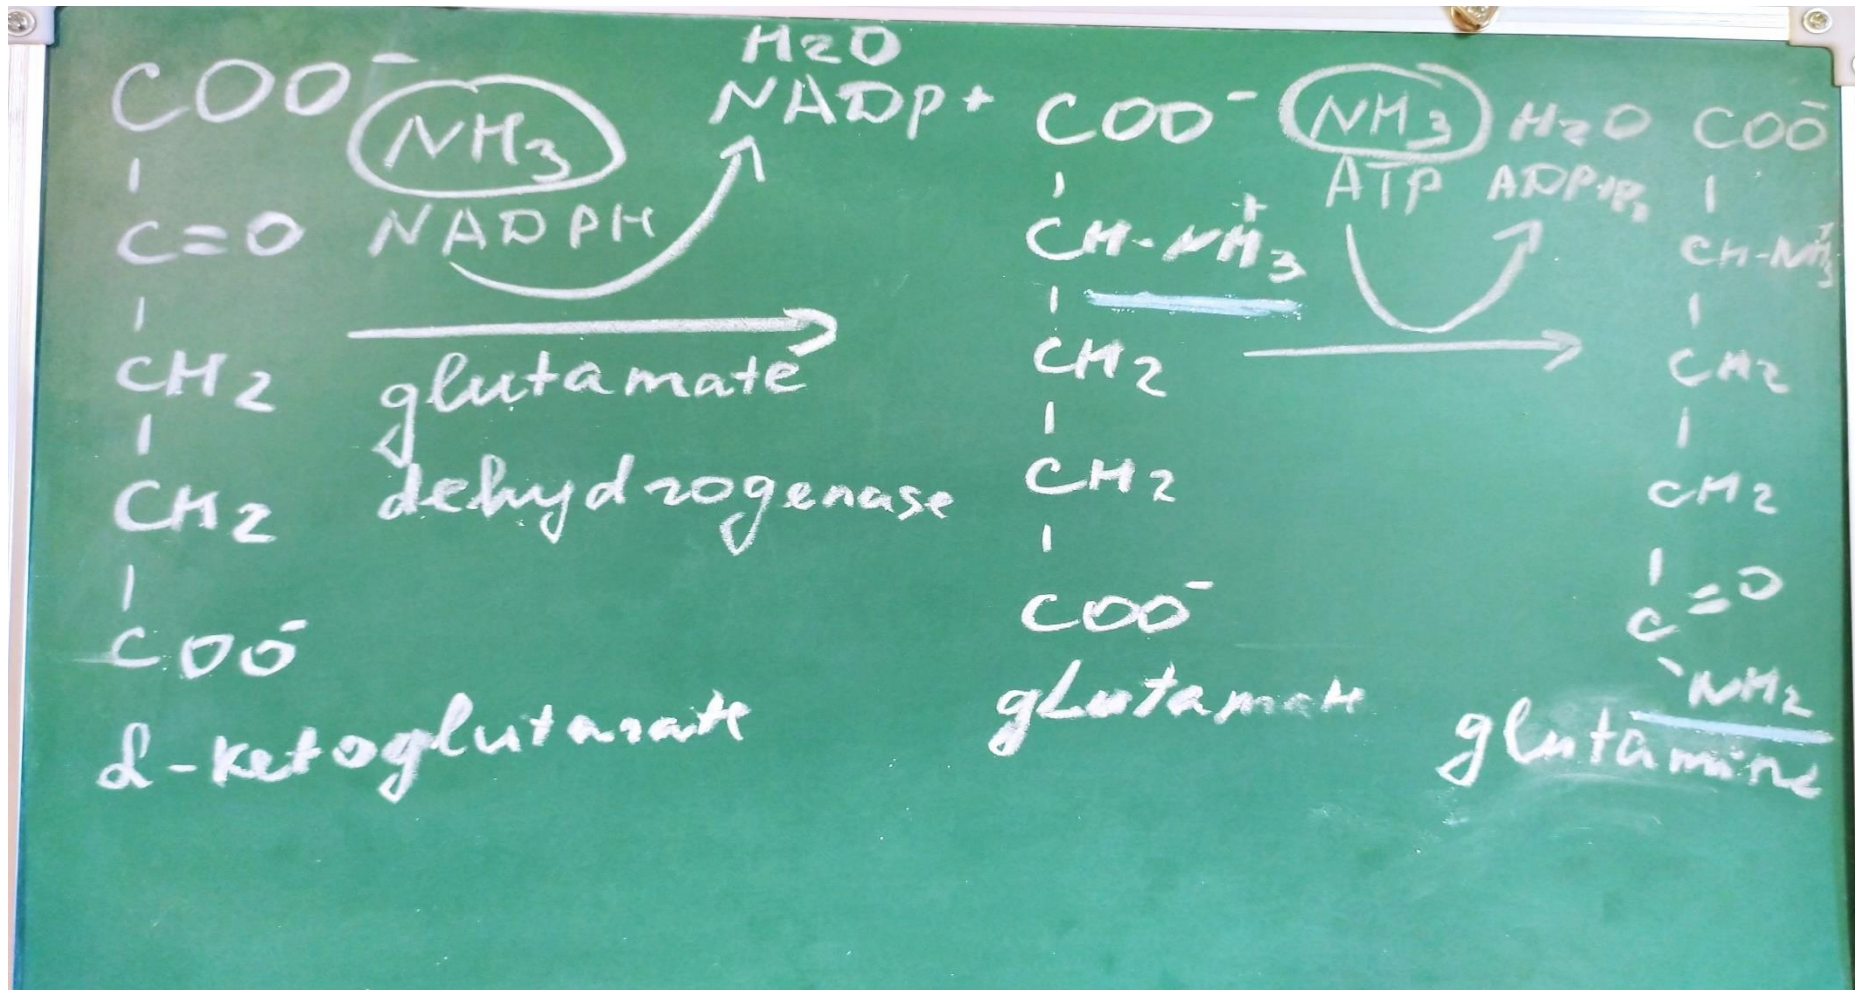 COO⁻
|
C=O
|
CH2
|
CH2
|
COO⁻
α-ketoglutarate
NH3
NADPH
H2O
NADP+
glutamate
dehydrogenase
COO⁻
|
CH-NH3⁺
|
CH2
|
CH2
|
COO⁻
glutamate
NH3
ATP
H2O
ADP+Pi
COO⁻
|
CH-NH3⁺
|
CH2
|
CH2
|
C=O
\
NH2
glutamine